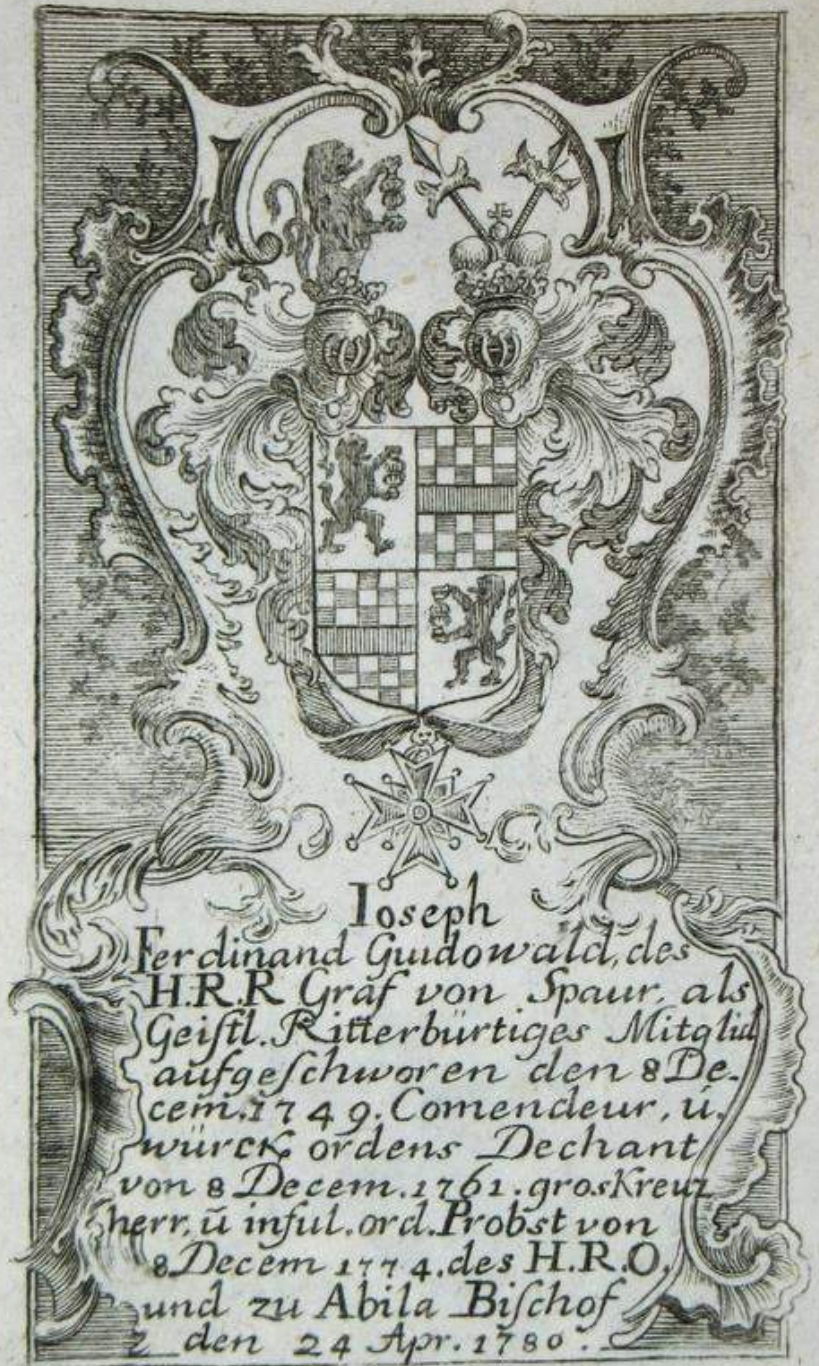 Ioseph
Ferdinand Guidowald, des
H.R.R Graf von Spaur, als
Geiſtl. Ritterbürtiges Mitglid
aufgeſchworen den 8 De-
cem. 1749. Comendeur, ū.
würck ordens Dechant
von 8 Decem. 1761. grosKreuz
herr, ū inful. ord. Probst von
8 Decem 1774. des H.R.O.
und zu Abila Biſchof
den 24 Apr. 1780.